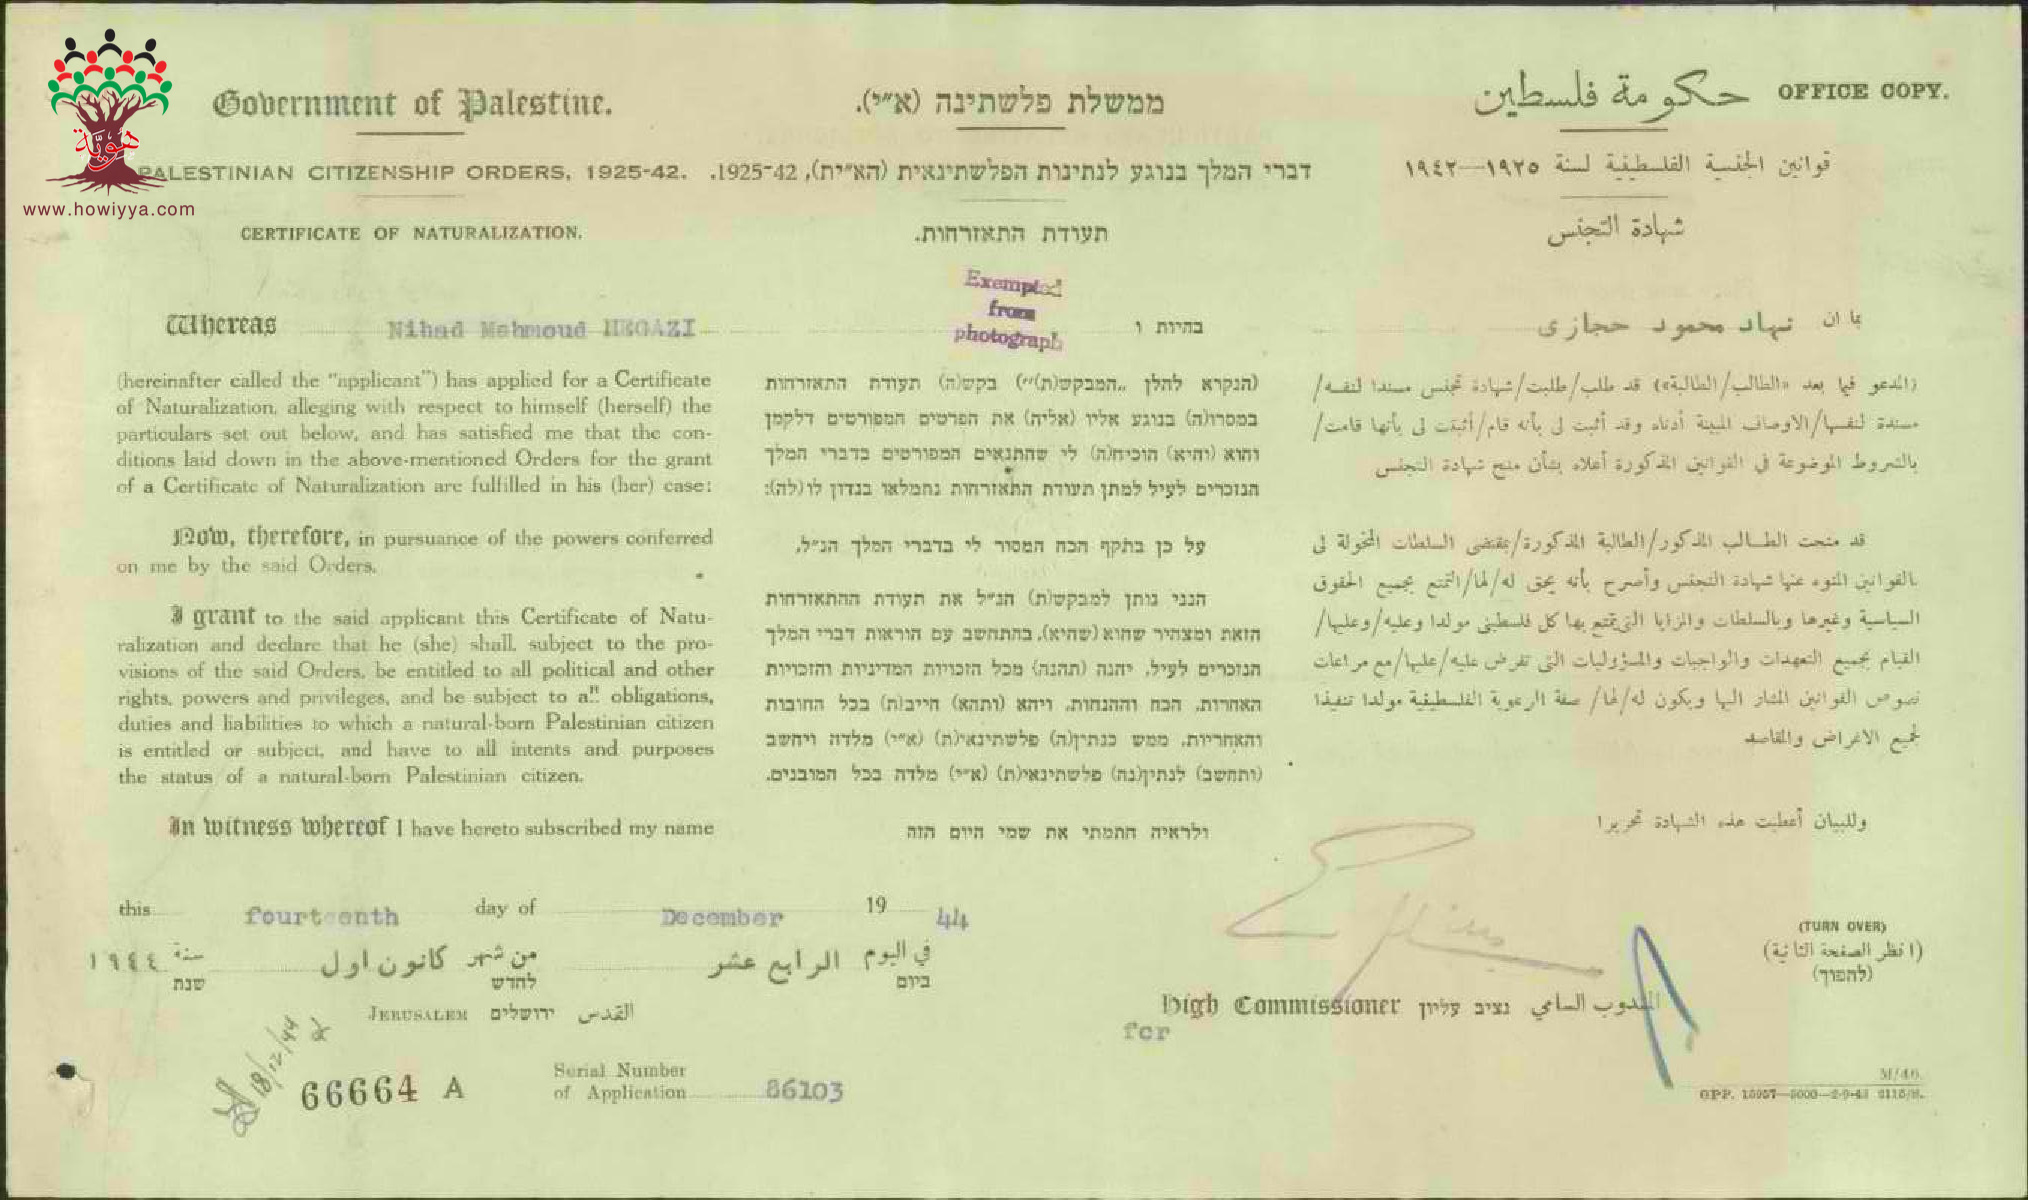 هوية
www.howiyya.com
OFFICE COPY.
Government of Palestine.
ממשלת פלשתינה (א״י).
حكومة فلسطين
PALESTINIAN CITIZENSHIP ORDERS, 1925-42.
דברי המלך בנוגע לנתינות הפלשתינאית (הא״ית), 1925-42.
قوانين الجنسية الفلسطينية لسنة ١٩٢٥—١٩٤٢
CERTIFICATE OF NATURALIZATION.
תעודת התאזרחות.
شهادة التجنس
Exempted
from
photograph
Whereas Nihad Mahmoud HEGAZI
(hereinafter called the "applicant") has applied for a Certificate
of Naturalization, alleging with respect to himself (herself) the
particulars set out below, and has satisfied me that the con-
ditions laid down in the above-mentioned Orders for the grant
of a Certificate of Naturalization are fulfilled in his (her) case:
Now, therefore, in pursuance of the powers conferred
on me by the said Orders,
I grant to the said applicant this Certificate of Natu-
ralization and declare that he (she) shall, subject to the pro-
visions of the said Orders, be entitled to all political and other
rights, powers and privileges, and be subject to all obligations,
duties and liabilities to which a natural-born Palestinian citizen
is entitled or subject, and have to all intents and purposes
the status of a natural-born Palestinian citizen.
In witness whereof I have hereto subscribed my name
בהיות ו
(הנקרא להלן „המבקש(ת)״) בקש(ה) תעודת התאזרחות
במסרו(ה) בנוגע אליו (אליה) את הפרטים המפורטים דלקמן
והוא (והיא) הוכיח(ה) לי שהתנאים המפורטים בדברי המלך
הנזכרים לעיל למתן תעודת התאזרחות נתמלאו בנדון לו(לה):
על כן בתקף הכח המסור לי בדברי המלך הנ״ל,
הנני נותן למבקש(ת) הנ״ל את תעודת ההתאזרחות
הזאת ומצהיר שהוא (שהיא), בהתחשב עם הוראות דברי המלך
הנזכרים לעיל, יהנה (תהנה) מכל הזכויות המדיניות והזכויות
האחרות, הכח וההנחות, ויהא (ותהא) חייב(ת) בכל החובות
והאחריות, ממש כנתין(ה) פלשתינאי(ת) (א״י) מלדה ויחשב
(ותחשב) לנתין(נה) פלשתינאי(ת) (א״י) מלדה בכל המובנים.
ולראיה חתמתי את שמי היום הזה
بما ان نهاد محمود حجازى
(المدعو فيما بعد «الطالب/الطالبة») قد طلب/طلبت/شهادة تجنس مسندا لنفسه/
مسندة لنفسها/الاوصاف المبينة أدناه وقد أثبت لى بأنه قام/أثبتت لى بأنها قامت/
بالشروط الموضوعة في القوانين المذكورة أعلاه بشأن منح شهادة التجنس
قد منحت الطالب المذكور/الطالبة المذكورة/بمقتضى السلطات المخولة لى
بالقوانين المنوه عنها شهادة التجنس وأصرح بأنه يحق له/لها/التمتع بجميع الحقوق
السياسية وغيرها وبالسلطات والمزايا التى يتمتع بها كل فلسطينى مولدا وعليه/وعليها/
القيام بجميع التعهدات والواجبات والمسؤوليات التى تفرض عليه/عليها/مع مراعات
نصوص القوانين المشار اليها ويكون له/لها/ صفة الرعوية الفلسطينية مولدا تنفيذا
لجميع الاغراض والمقاصد
وللبيان أعطيت هذه الشهادة تحريرا
this fourteenth day of December 19 44
في اليوم الرابع عشر من شهر كانون اول سنة ١٩٤٤
ביום לחדש שנת
JERUSALEM ירושלים القدس
(TURN OVER)
(انظر الصفحة الثانية)
(להפוך)
High Commissioner נציב עליון المندوب السامي
for
18/12/44
66664 A
Serial Number
of Application 86103
M/46.
GPP. 15957—5000—2-9-43 2115/M.